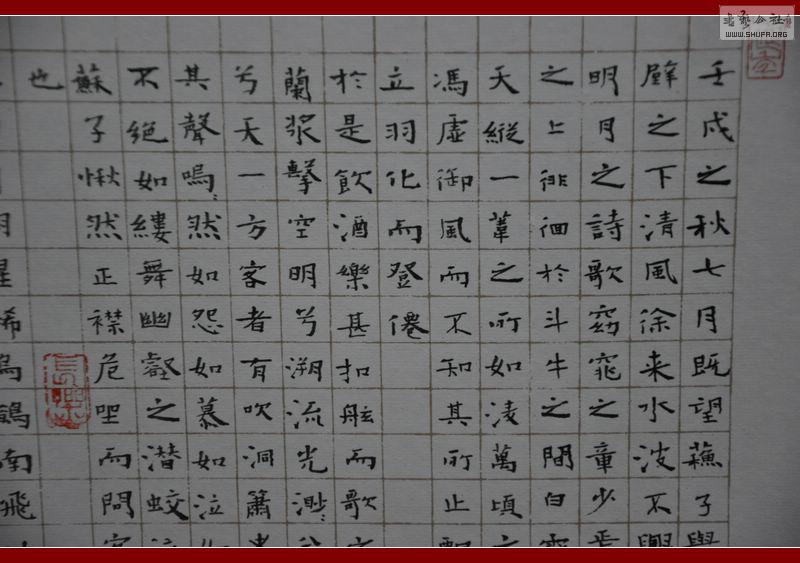 壬戌之秋七月既望蘇子與
壁之下清風徐来水波不興
明月之詩歌窈窕之章少焉
之上徘徊於斗牛之間白露
天縱一葦之所如淩萬頃之
馮虛御風而不知其所止飄
立羽化而登僊
於是飲酒樂甚扣舷而歌之
蘭漿擊空明兮溯流光渺〻兮
兮天一方客者有吹洞簫者
其聲嗚〻然如怨如慕如泣如
不絕如縷舞幽壑之潜蛟泣
蘇子愀然正襟危坐而問客
也
明星稀烏鵲南飛
WWW.SHUFA.ORG